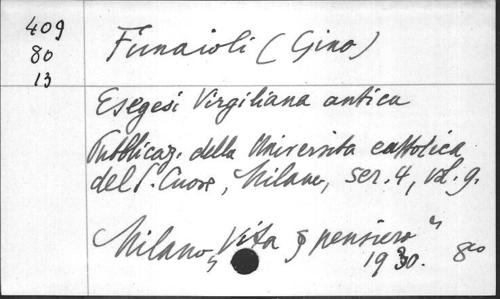 409
80
13
Funaioli (Gino)
Esegesi Virgiliana antica
Pubblicaz. della Università cattolica
del S. Cuore, Milano, ser. 4, vol. 9.
Milano, "Vita e pensiero"
1930. 8vo